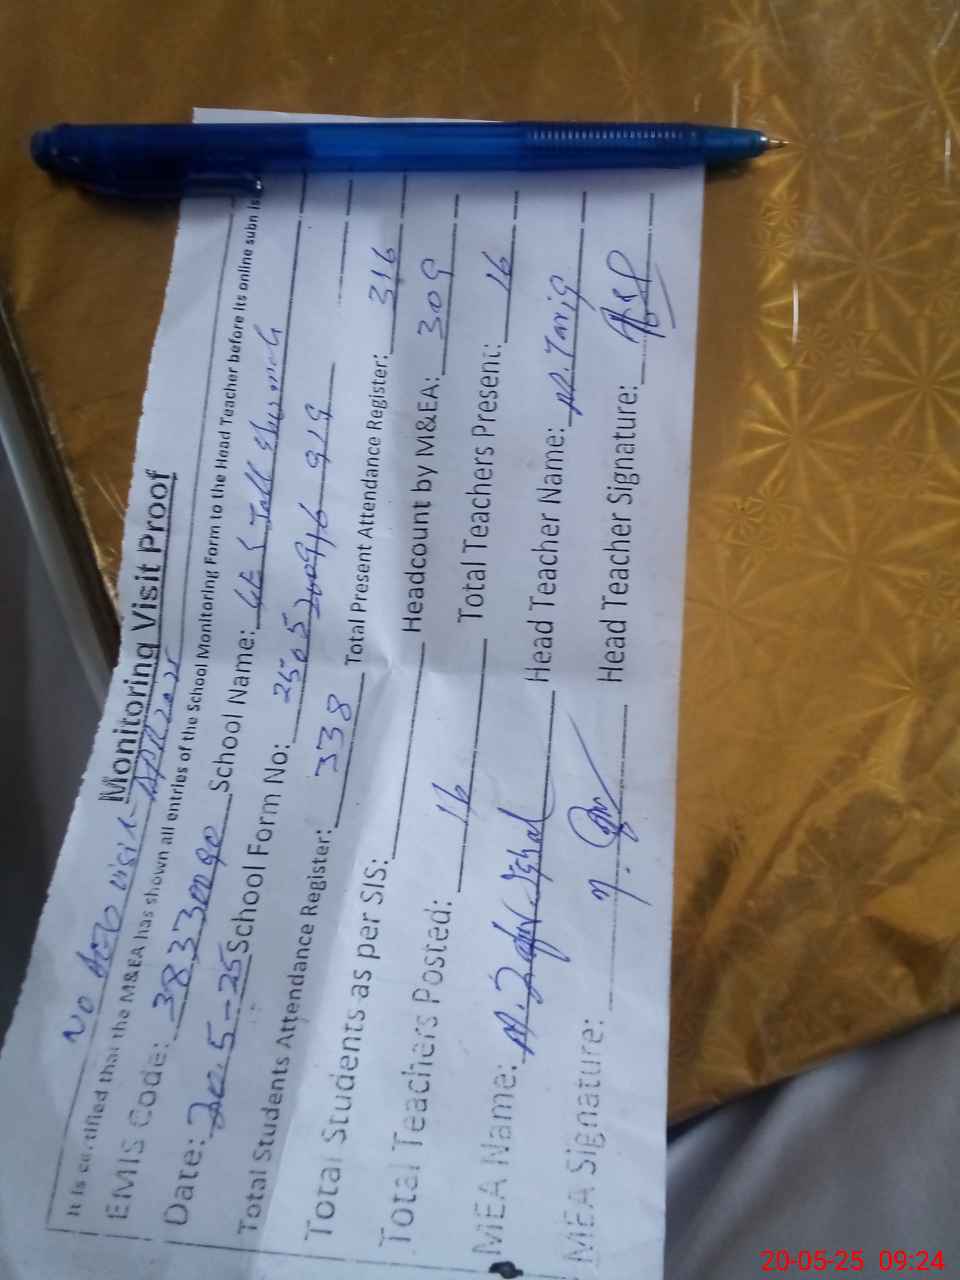 Monitoring Visit Proof
No AEO visit APR 2025
It is certified that the M&EA has shown all entries of the School Monitoring Form to the Head Teacher before its online subn
EMIS Code: 38330090 School Name: GES
Date: 20.5-25 School Form No: 2505
Total Students Attendance Register: 338 Total Present Attendance Register: 316
Total Students as per SIS: Headcount by M&EA: 309
Total Teachers Posted: 16 Total Teachers Present: 16
MEA Name: M. Head Teacher Name: M. Tariq
MEA Signature: Head Teacher Signature:
20-05-25 09:24